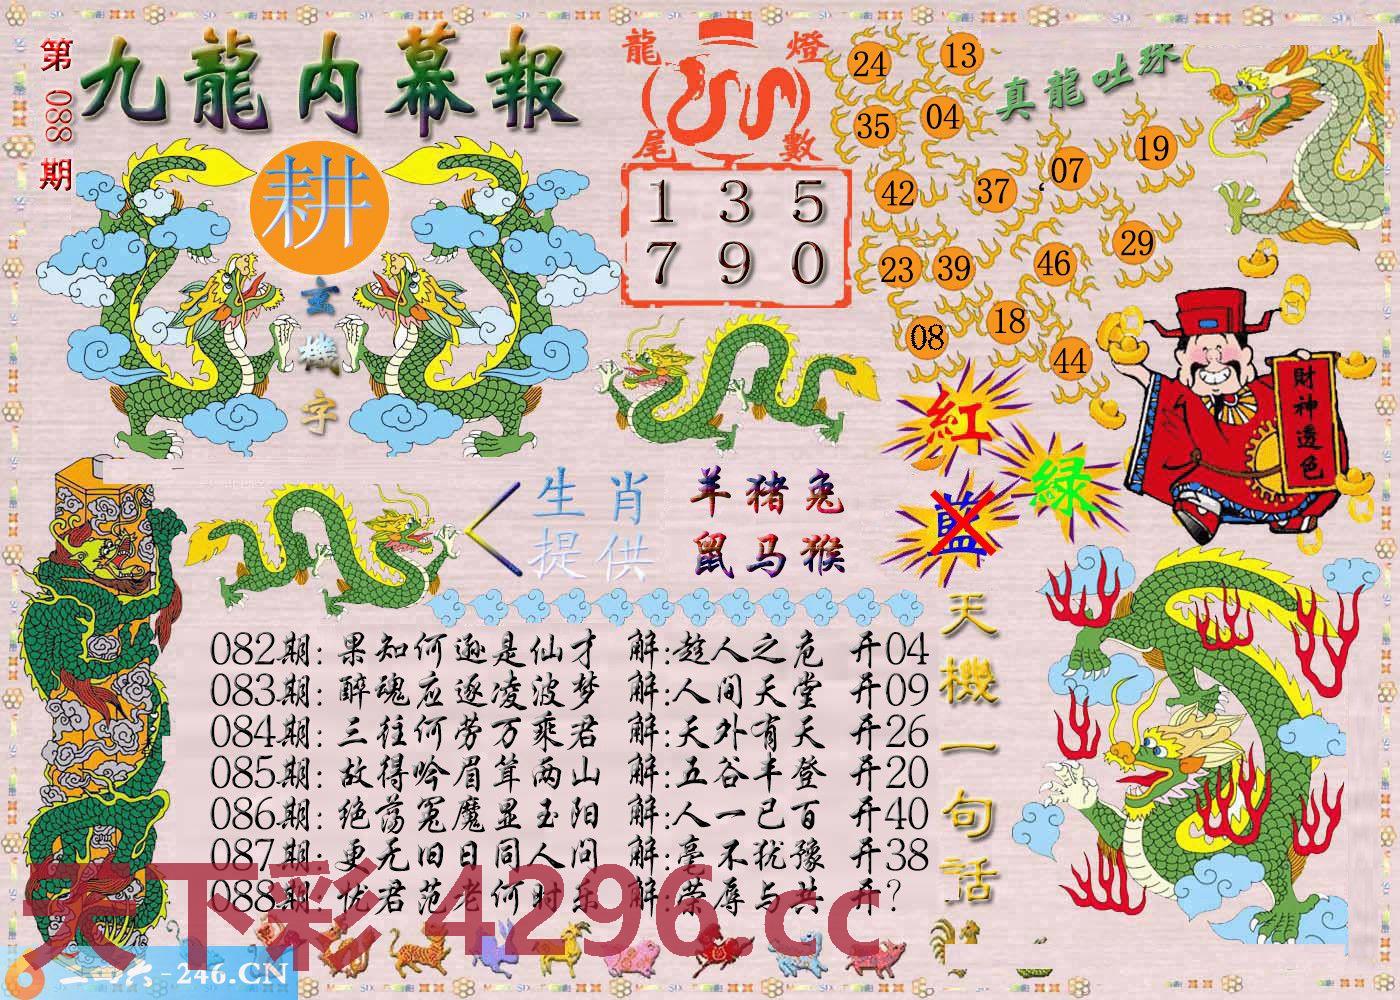 第088期
九龍内幕報
龍燈
尾數
1 3 5
7 9 0
真龍吐珠
24 13
35 04
42 37 07 19
23 39 46 29
08 18 44
耕
玄機字
財神透色
紅
绿
藍
生肖
提供
羊猪兔
鼠马猴
天機一句話
082期: 果知何逊是仙才 解:趁人之危 开04
083期: 醉魂应逐凌波梦 解:人间天堂 开09
084期: 三往何劳万乘君 解:天外有天 开26
085期: 故得吟眉耸两山 解:五谷丰登 开20
086期: 绝荡冤魔显玉阳 解:人一已百 开40
087期: 更无旧日同人问 解:毫不犹豫 开38
088期: 忧君范老何时乐 解:荣辱与共 开?
天下彩 4296.cc
二四六-246.CN